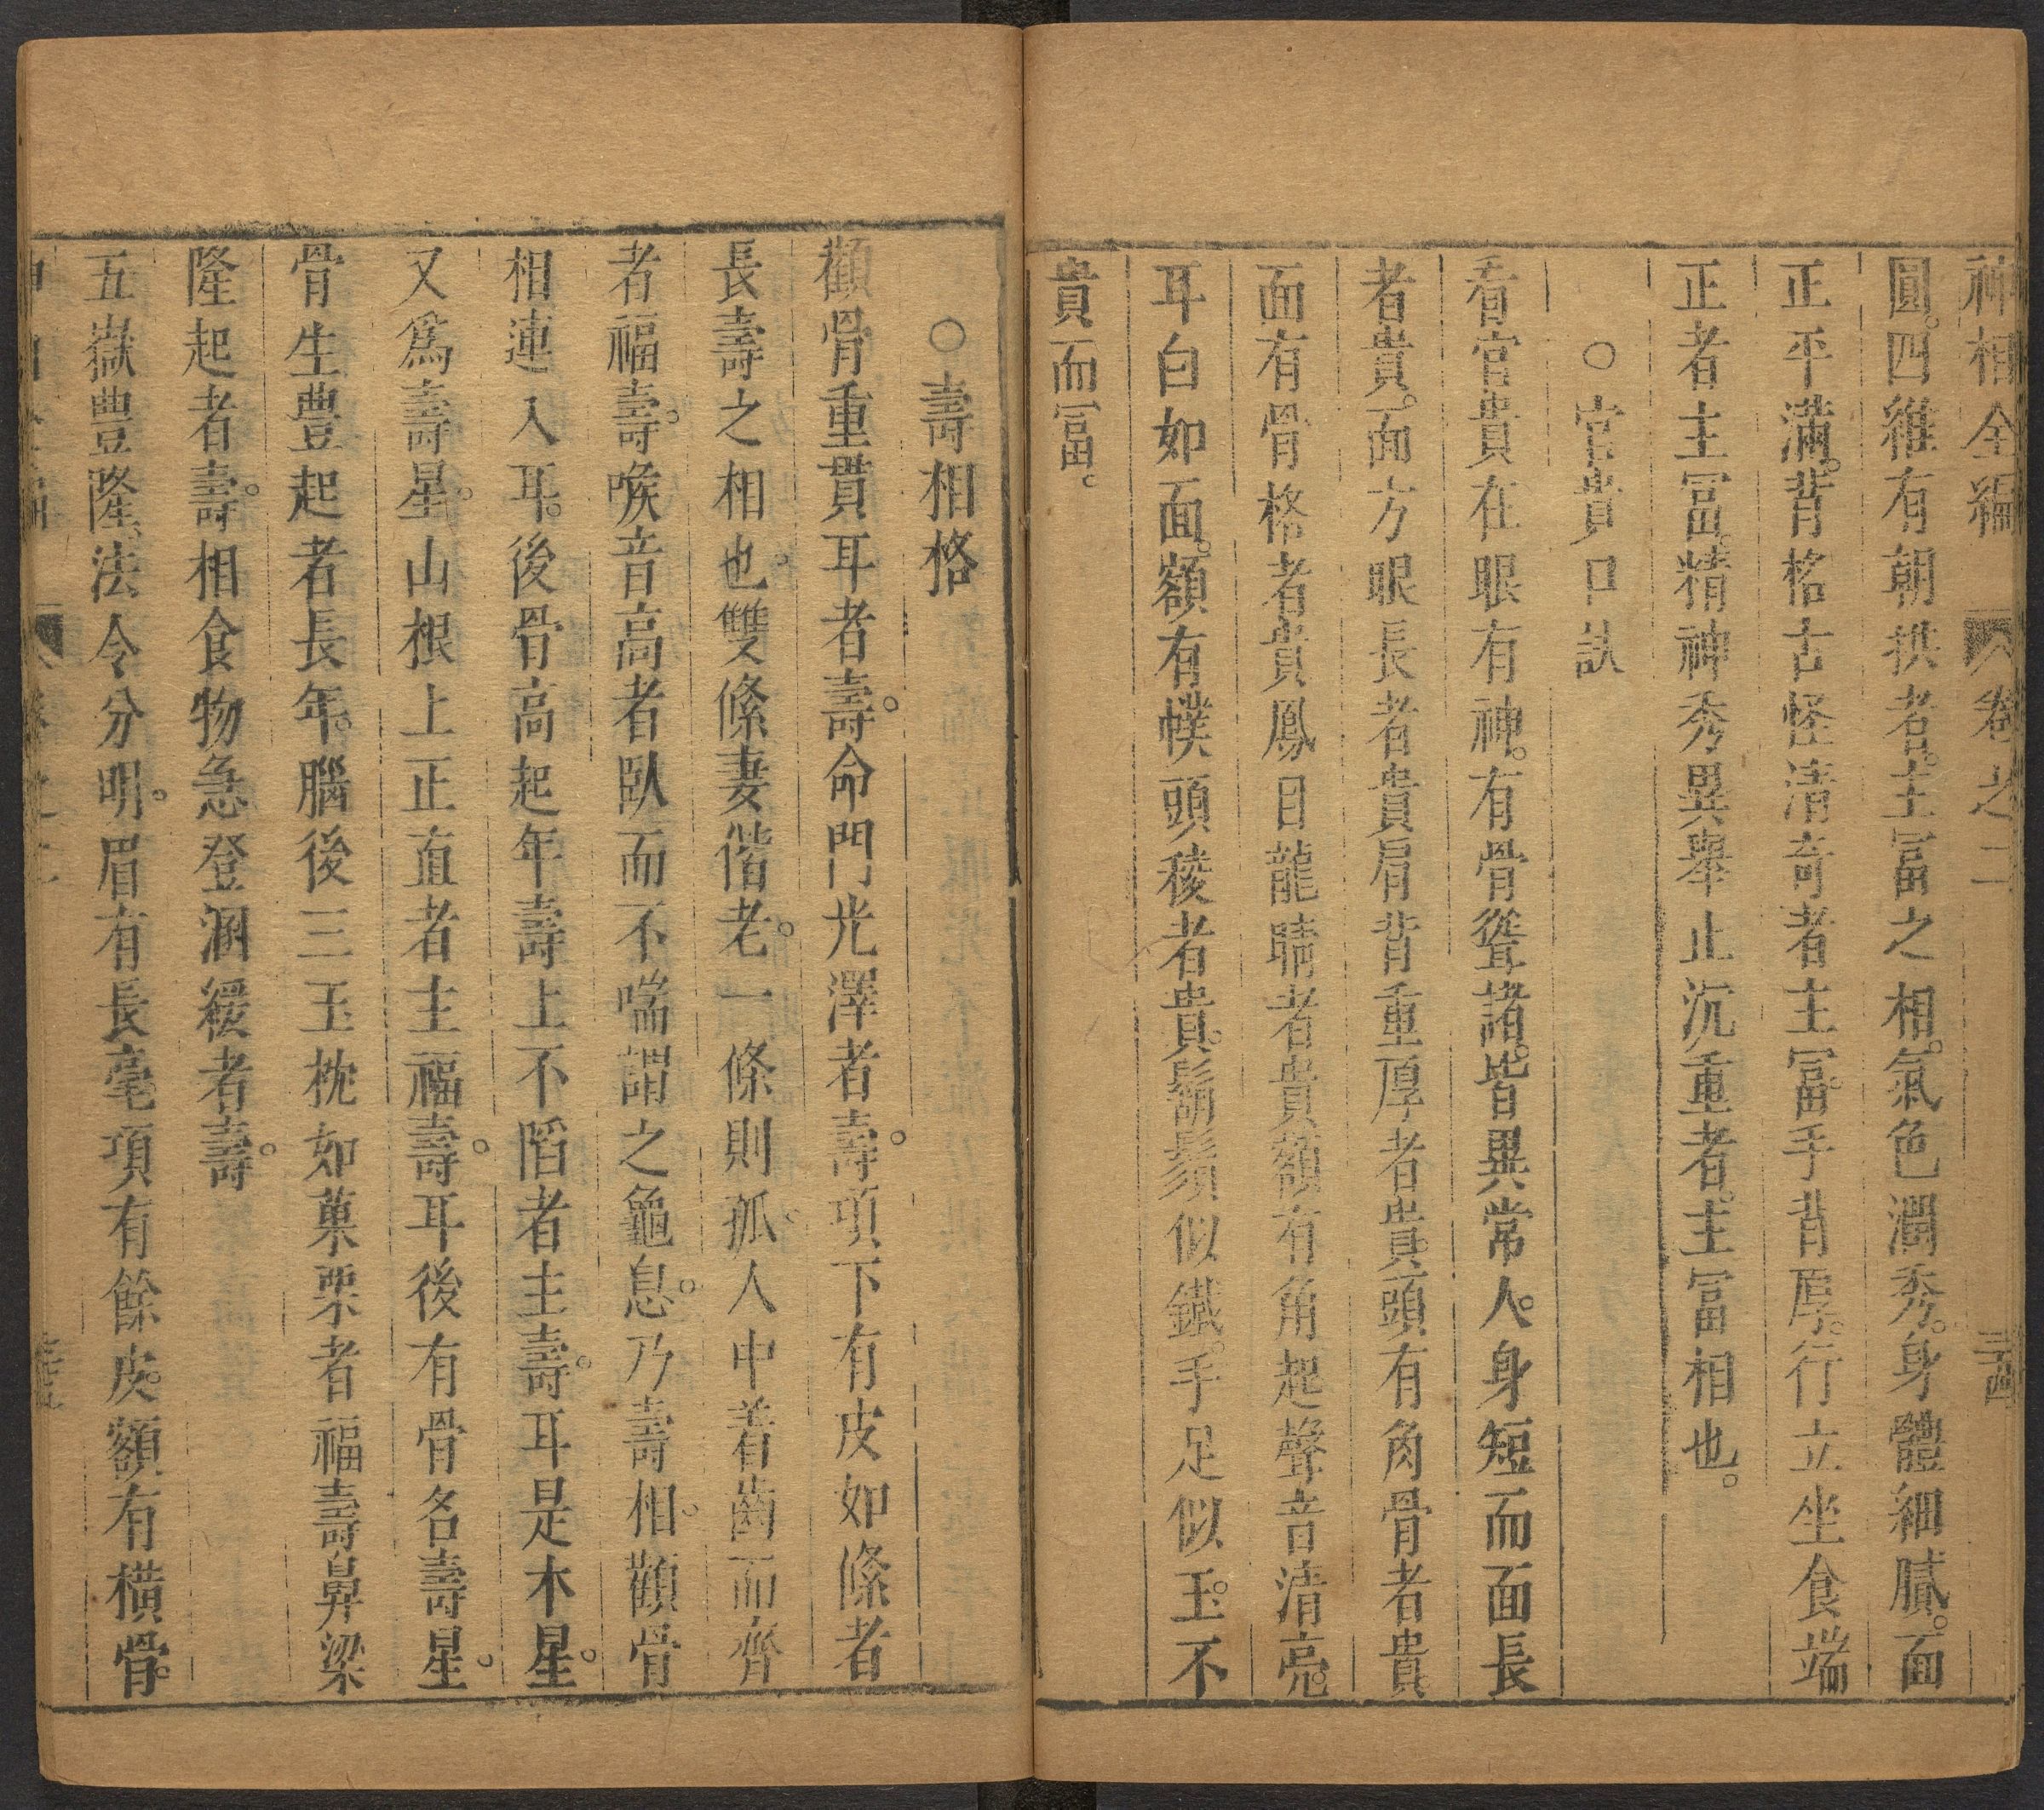 神相全編 卷之二 三十四
圓。四維有朝拱者。主冨之相。氣色潤秀。身體細膩。面
正平滿。背格古怪清奇者主冨。手背厚。行立坐食端
正者主冨。精神秀異舉止沉重者。主冨相也。
○官貴口訣
看官貴在眼有神。有骨聳諸。皆異常人。身短而面長
者貴。面方眼長者貴肩背重厚者貴。頭有角骨者貴
面有骨格者貴鳳目龍睛者貴額有角起聲音清亮。
耳白如面。額有幞頭稜者貴。鬍鬚似鐵。手足似玉。不
貴而冨。
○壽相格
顴骨重貫耳者壽。命門光澤者壽。項下有皮如絛者
長壽之相也。雙絛妻偕老。一條則孤。人中着齒而齊
者福壽。喉音高者臥而不喘謂之龜息。乃壽相。顴骨
相連入耳。後骨高起年壽上不陷者主壽。耳是木星。
又爲壽星。山根上正直者主福壽。耳後有骨名壽星。
骨生豊起者長年。腦後三玉枕如菓栗者福壽鼻梁
隆起者壽。相食物急登溷緩者壽。
五嶽豊隆、法令分明。眉有長毫項有餘皮。額有橫骨。